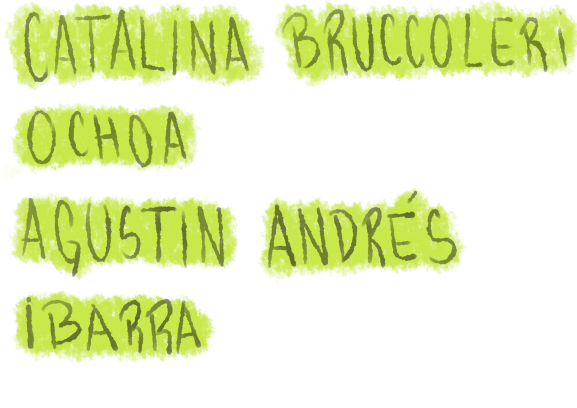 CATALINA BRUCCOLERI
OCHOA
AGUSTIN ANDRÉS
IBARRA